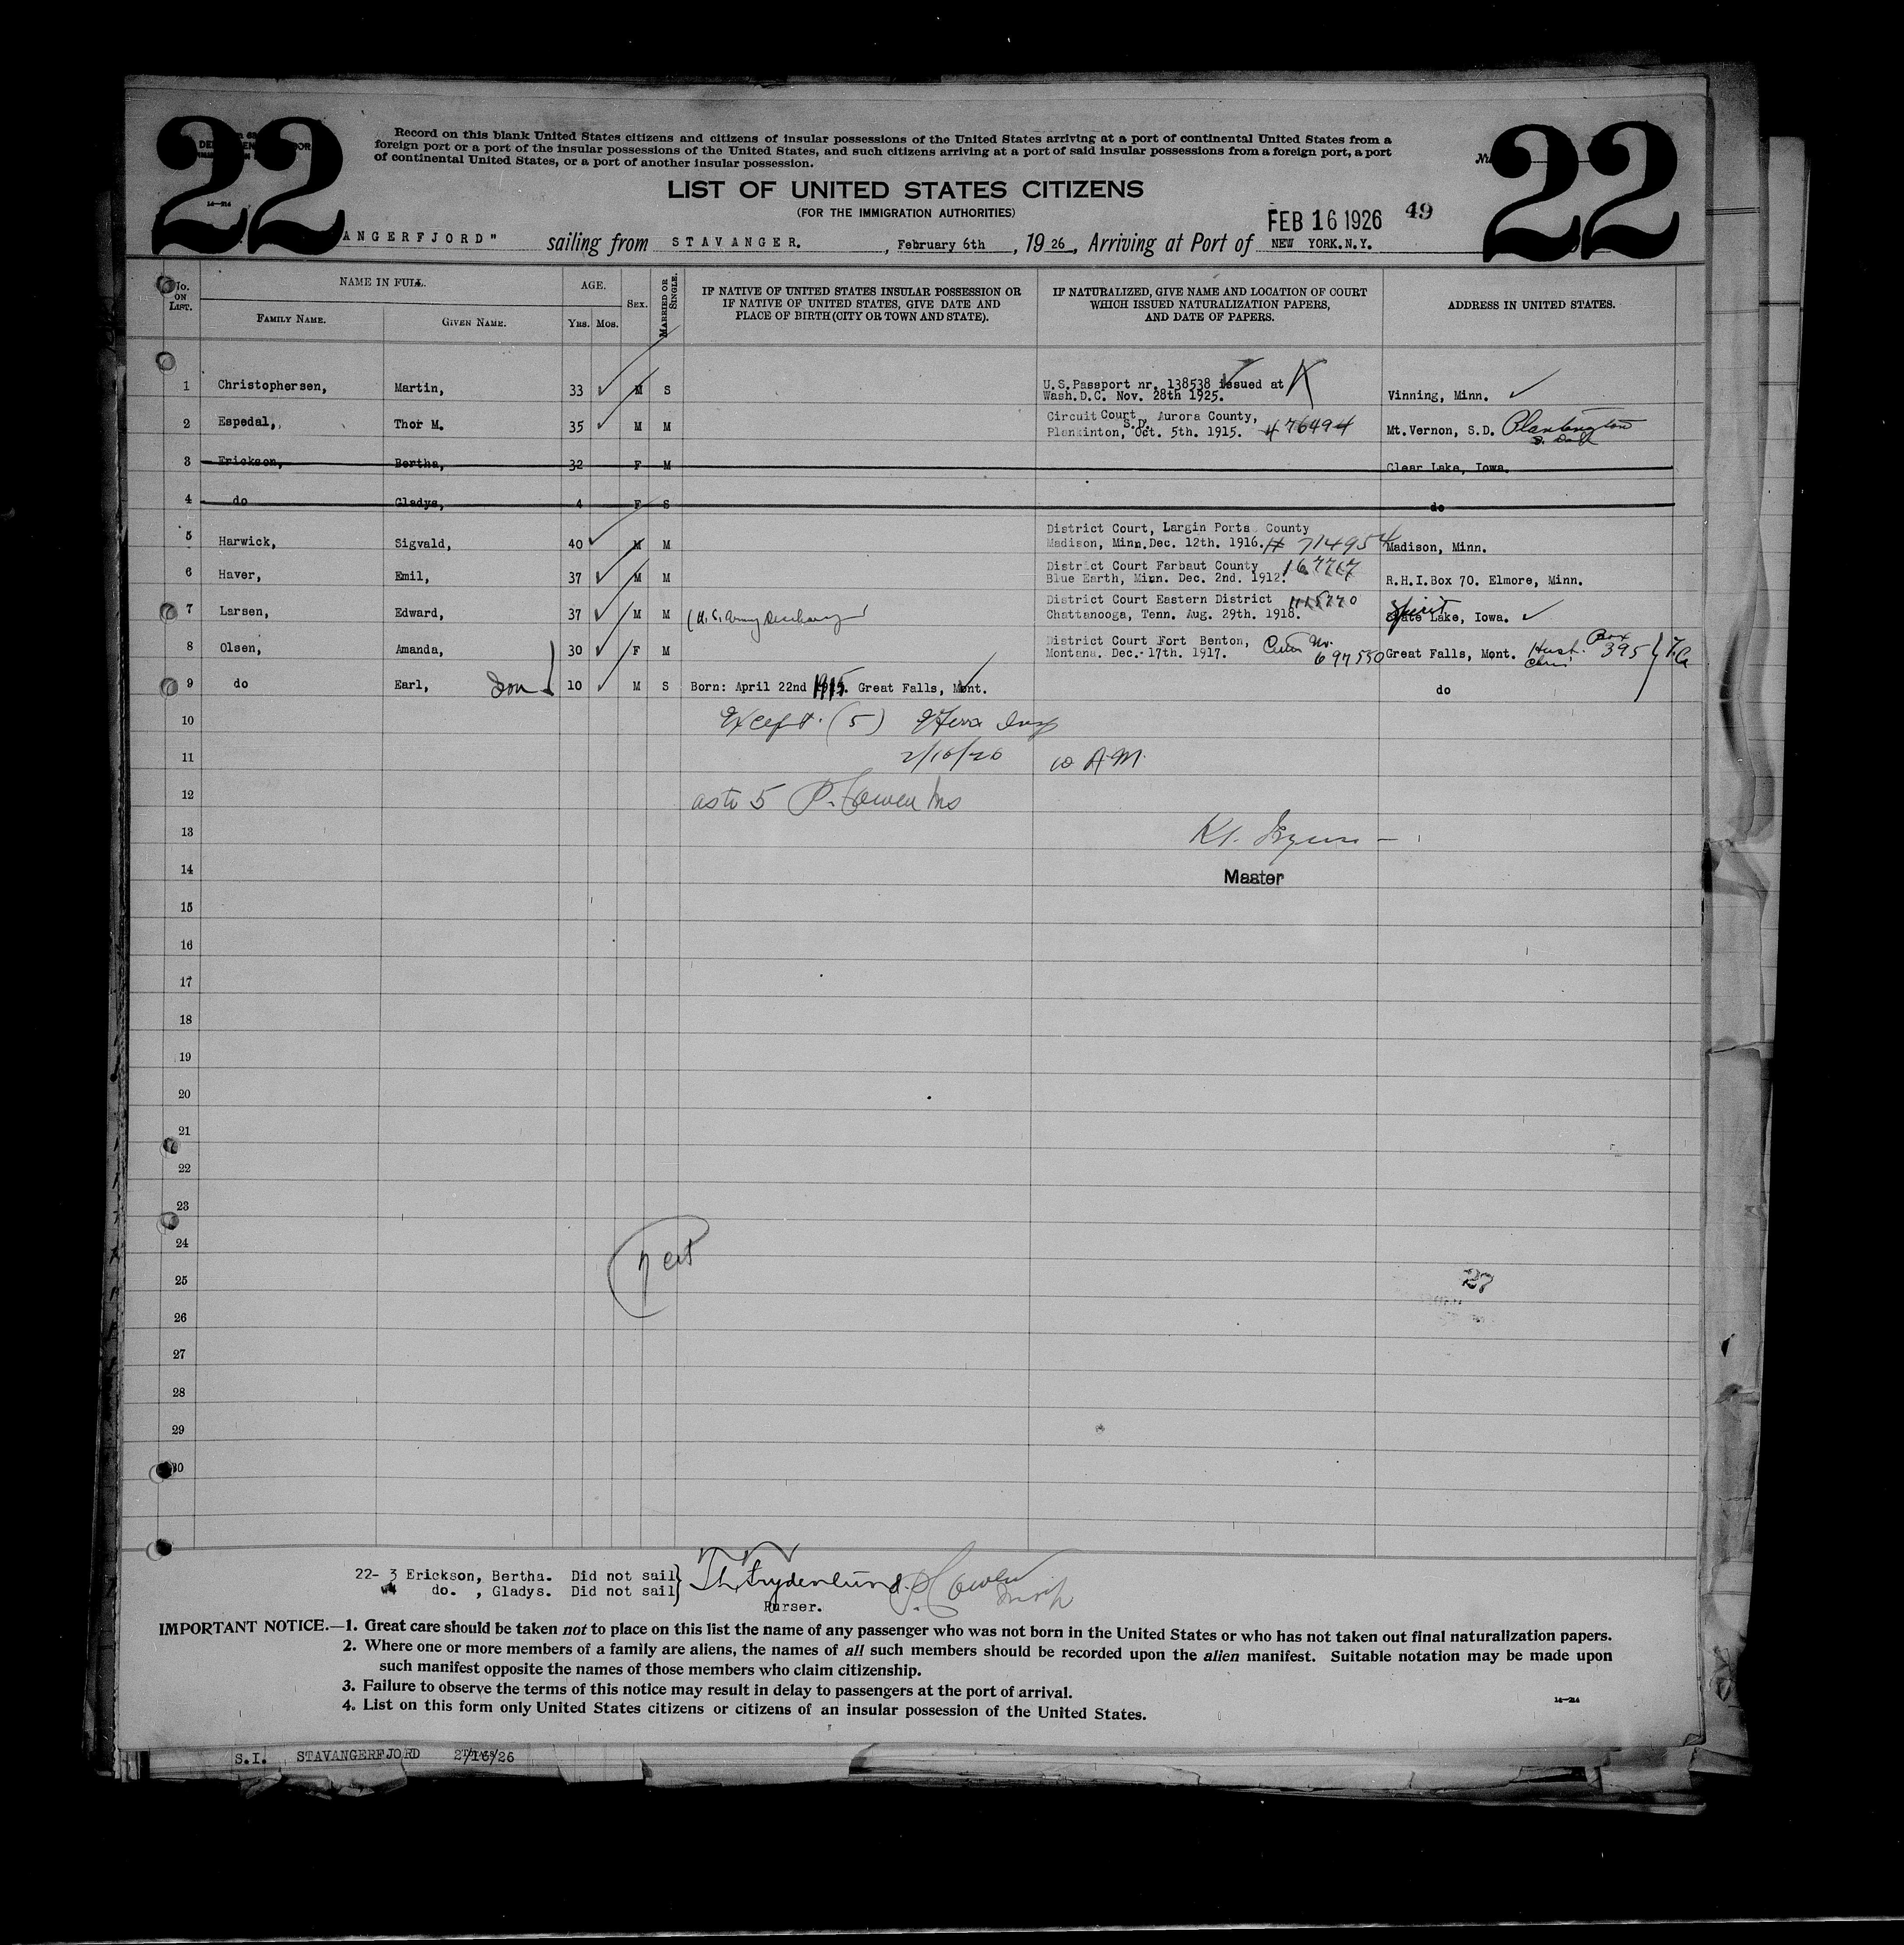 22
22
Record on this blank United States citizens and citizens of insular possessions of the United States arriving at a port of continental United States from a
foreign port or a port of the insular possessions of the United States, and such citizens arriving at a port of said insular possessions from a foreign port, a port
of continental United States, or a port of another insular possession.
LIST OF UNITED STATES CITIZENS
(FOR THE IMMIGRATION AUTHORITIES)
FEB 16 1926 49
ANGERFJORD" sailing from STAVANGER. , February 6th , 19 26 , Arriving at Port of NEW YORK.N.Y.
No. ON LIST.
NAME IN FULL.
FAMILY NAME.
GIVEN NAME.
AGE.
YRS. MOS.
SEX.
MARRIED OR SINGLE.
IF NATIVE OF UNITED STATES INSULAR POSSESSION OR
IF NATIVE OF UNITED STATES, GIVE DATE AND
PLACE OF BIRTH (CITY OR TOWN AND STATE).
IF NATURALIZED, GIVE NAME AND LOCATION OF COURT
WHICH ISSUED NATURALIZATION PAPERS,
AND DATE OF PAPERS.
ADDRESS IN UNITED STATES.
1 Christophersen, Martin, 33 M S U.S.Passport nr. 138538 issued at
Wash.D.C. Nov. 28th 1925. Vinning, Minn.
2 Espedal, Thor M. 35 M M Circuit Court, Aurora County,
S.D.
Plankinton, Oct. 5th. 1915. # 76494 Mt.Vernon, S.D.
3 Erickson, Bertha, 32 F M Clear Lake, Iowa.
4 do Gladys, 4 F S do
5 Harwick, Sigvald, 40 M M District Court, Largin Ports County
Madison, Minn.Dec. 12th. 1916. # 714954 Madison, Minn.
6 Haver, Emil, 37 M M District Court Farbaut County
Blue Earth, Minn. Dec. 2nd. 1912. R.H.I.Box 70. Elmore, Minn.
7 Larsen, Edward, 37 M M (U.S. Army Discharge) District Court Eastern District
Chattanooga, Tenn. Aug. 29th. 1918. Spirit Lake, Iowa.
8 Olsen, Amanda, 30 F M District Court Fort Benton,
Montana. Dec. 17th. 1917. 697550 Great Falls, Mont. Box 395
9 do Earl, Son 10 M S Born: April 22nd 1915. Great Falls, Mont. do
10 Except. (5)
11 2/16/26 10 A.M.
12 as to 5
13
14 Master
15
16
17
18
19
20
21
22
23
24
25 27
26
27
28
29
30
22- 3 Erickson, Bertha. Did not sail
4 do. , Gladys. Did not sail
Purser.
IMPORTANT NOTICE.—1. Great care should be taken not to place on this list the name of any passenger who was not born in the United States or who has not taken out final naturalization papers.
2. Where one or more members of a family are aliens, the names of all such members should be recorded upon the alien manifest. Suitable notation may be made upon
such manifest opposite the names of those members who claim citizenship.
3. Failure to observe the terms of this notice may result in delay to passengers at the port of arrival.
4. List on this form only United States citizens or citizens of an insular possession of the United States.
14—214
S.I. STAVANGERFJORD 2/16/26